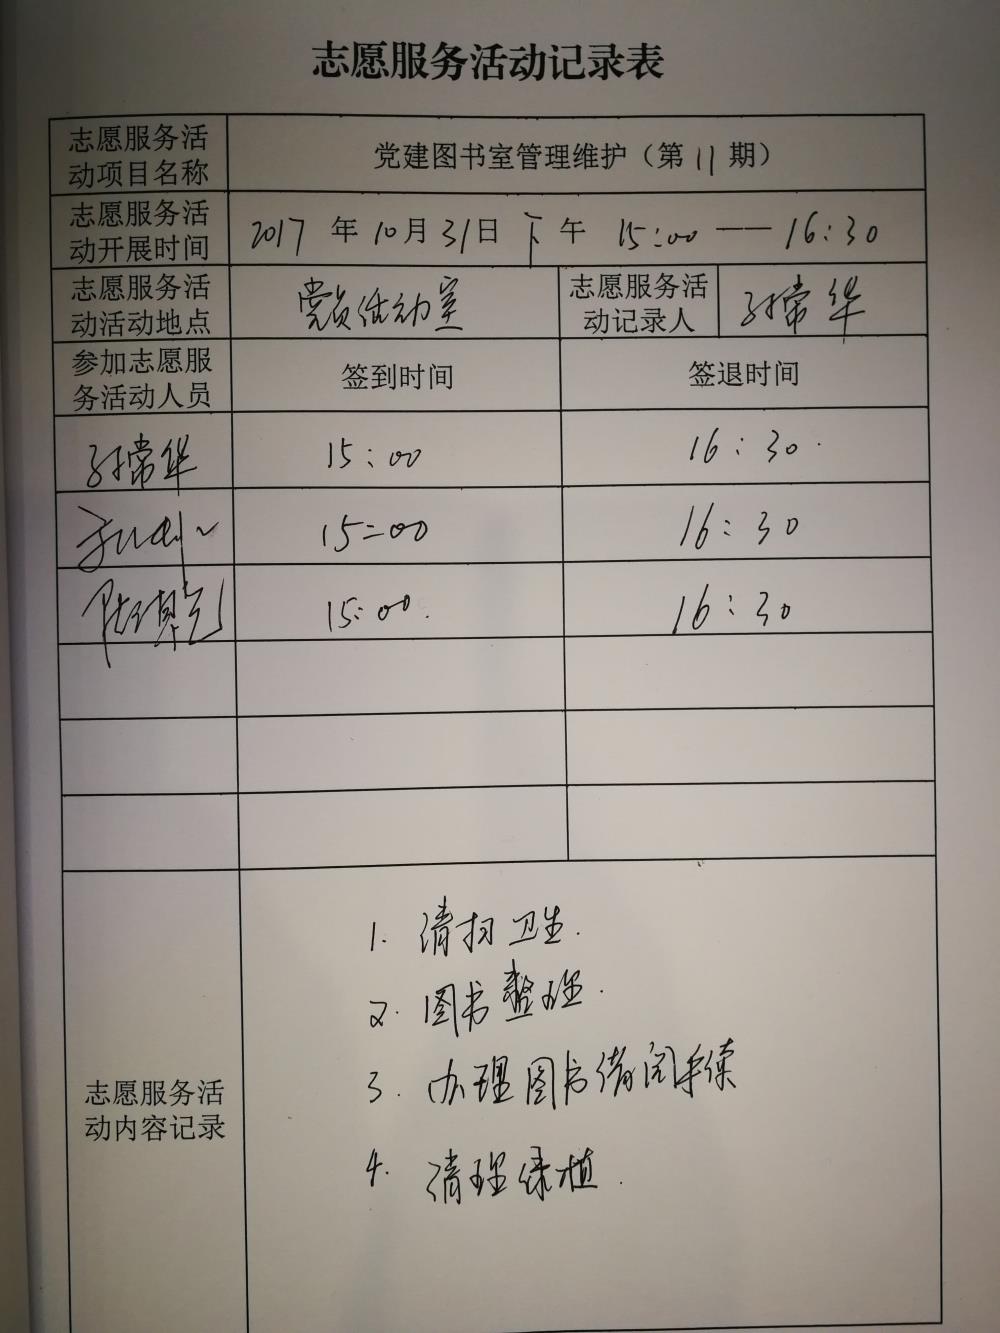 志愿服务活动记录表
志愿服务活
动项目名称
党建图书室管理维护（第11期）
志愿服务活
动开展时间
2017年10月31日下午 15:00——16:30
志愿服务活
动活动地点
党员活动室
志愿服务活
动记录人
孙常华
参加志愿服
务活动人员
签到时间
签退时间
孙常华
15:00
16:30
15:00
16:30
15:00
16:30
志愿服务活
动内容记录
1. 清扫卫生.
2. 图书整理.
3. 办理图书借阅手续
4. 清理绿植.